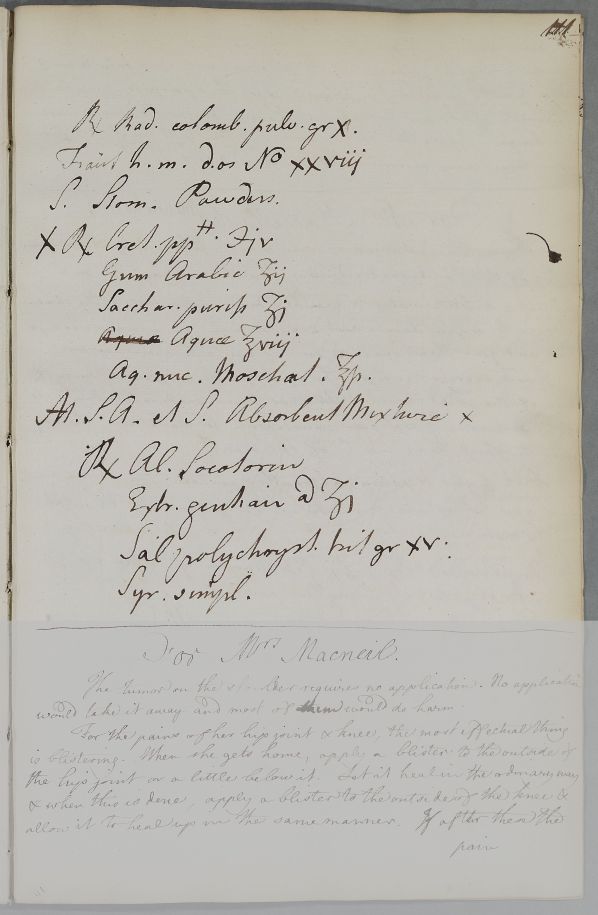 141
℞ Rad. colomb. pulv. gr x.
Fiant h. m. d.os No xxviij
S. Stom. Powders.
X ℞ Cret. pptt. ʒjv
Gum Arabic ʒij
Sacchar. puriss ʒj
Aquæ ℥viij
Aq. nuc. Moschat. ℥ss.
M. S. A. et S. Absorbent Mixture x
℞ Al. Socotorin
Extr. gentian a ʒj
Sal polychryst. trit gr xv.
Syr. simpl.
For Mrs Macneil.
The tumor on the shoulder requires no application. No application
would take it away and most of them would do harm.
For the pains of her hip joint & knee, the most effectual thing
is blistering. When she gets home, apply a blister to the outside of
the hip joint or a little below it. Let it heal in the ordinary way
& when this is done, apply a blister to the outside of the knee &
allow it to heal up in the same manner. If after these the
pain